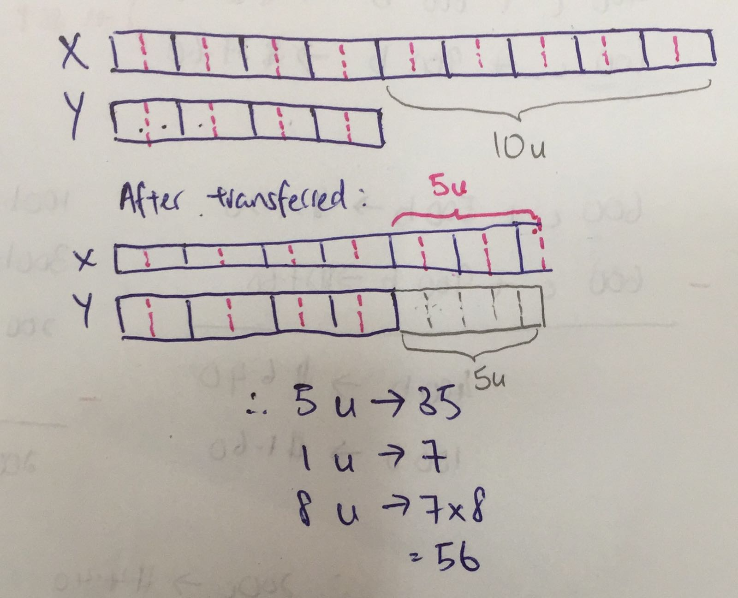 X
Y
10u
After transferred:
5u
X
Y
5u
∴ 5 u → 35
1 u → 7
8 u → 7×8
= 56